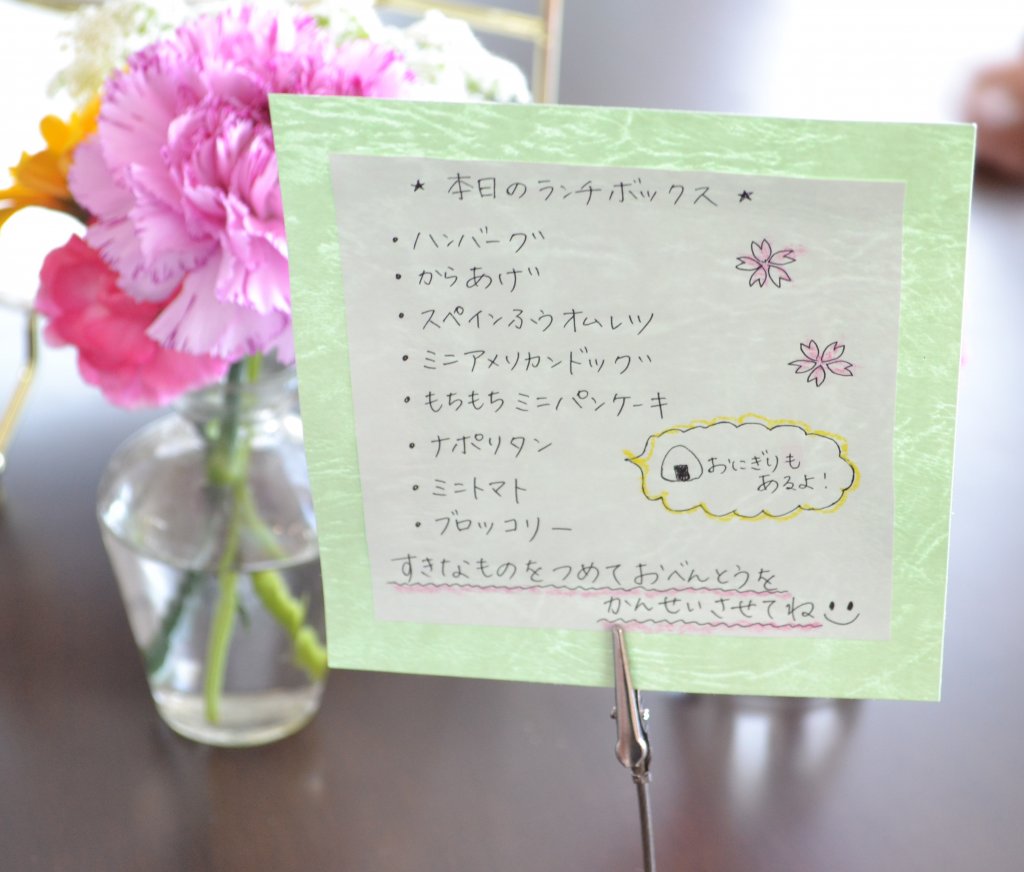 ★ 本日のランチボックス ★
・ハンバーグ
・からあげ
・スペインふうオムレツ
・ミニアメリカンドッグ
・もちもちミニパンケーキ
・ナポリタン
・ミニトマト
・ブロッコリー
おにぎりも
あるよ!
すきなものをつめておべんとうを
かんせいさせてね